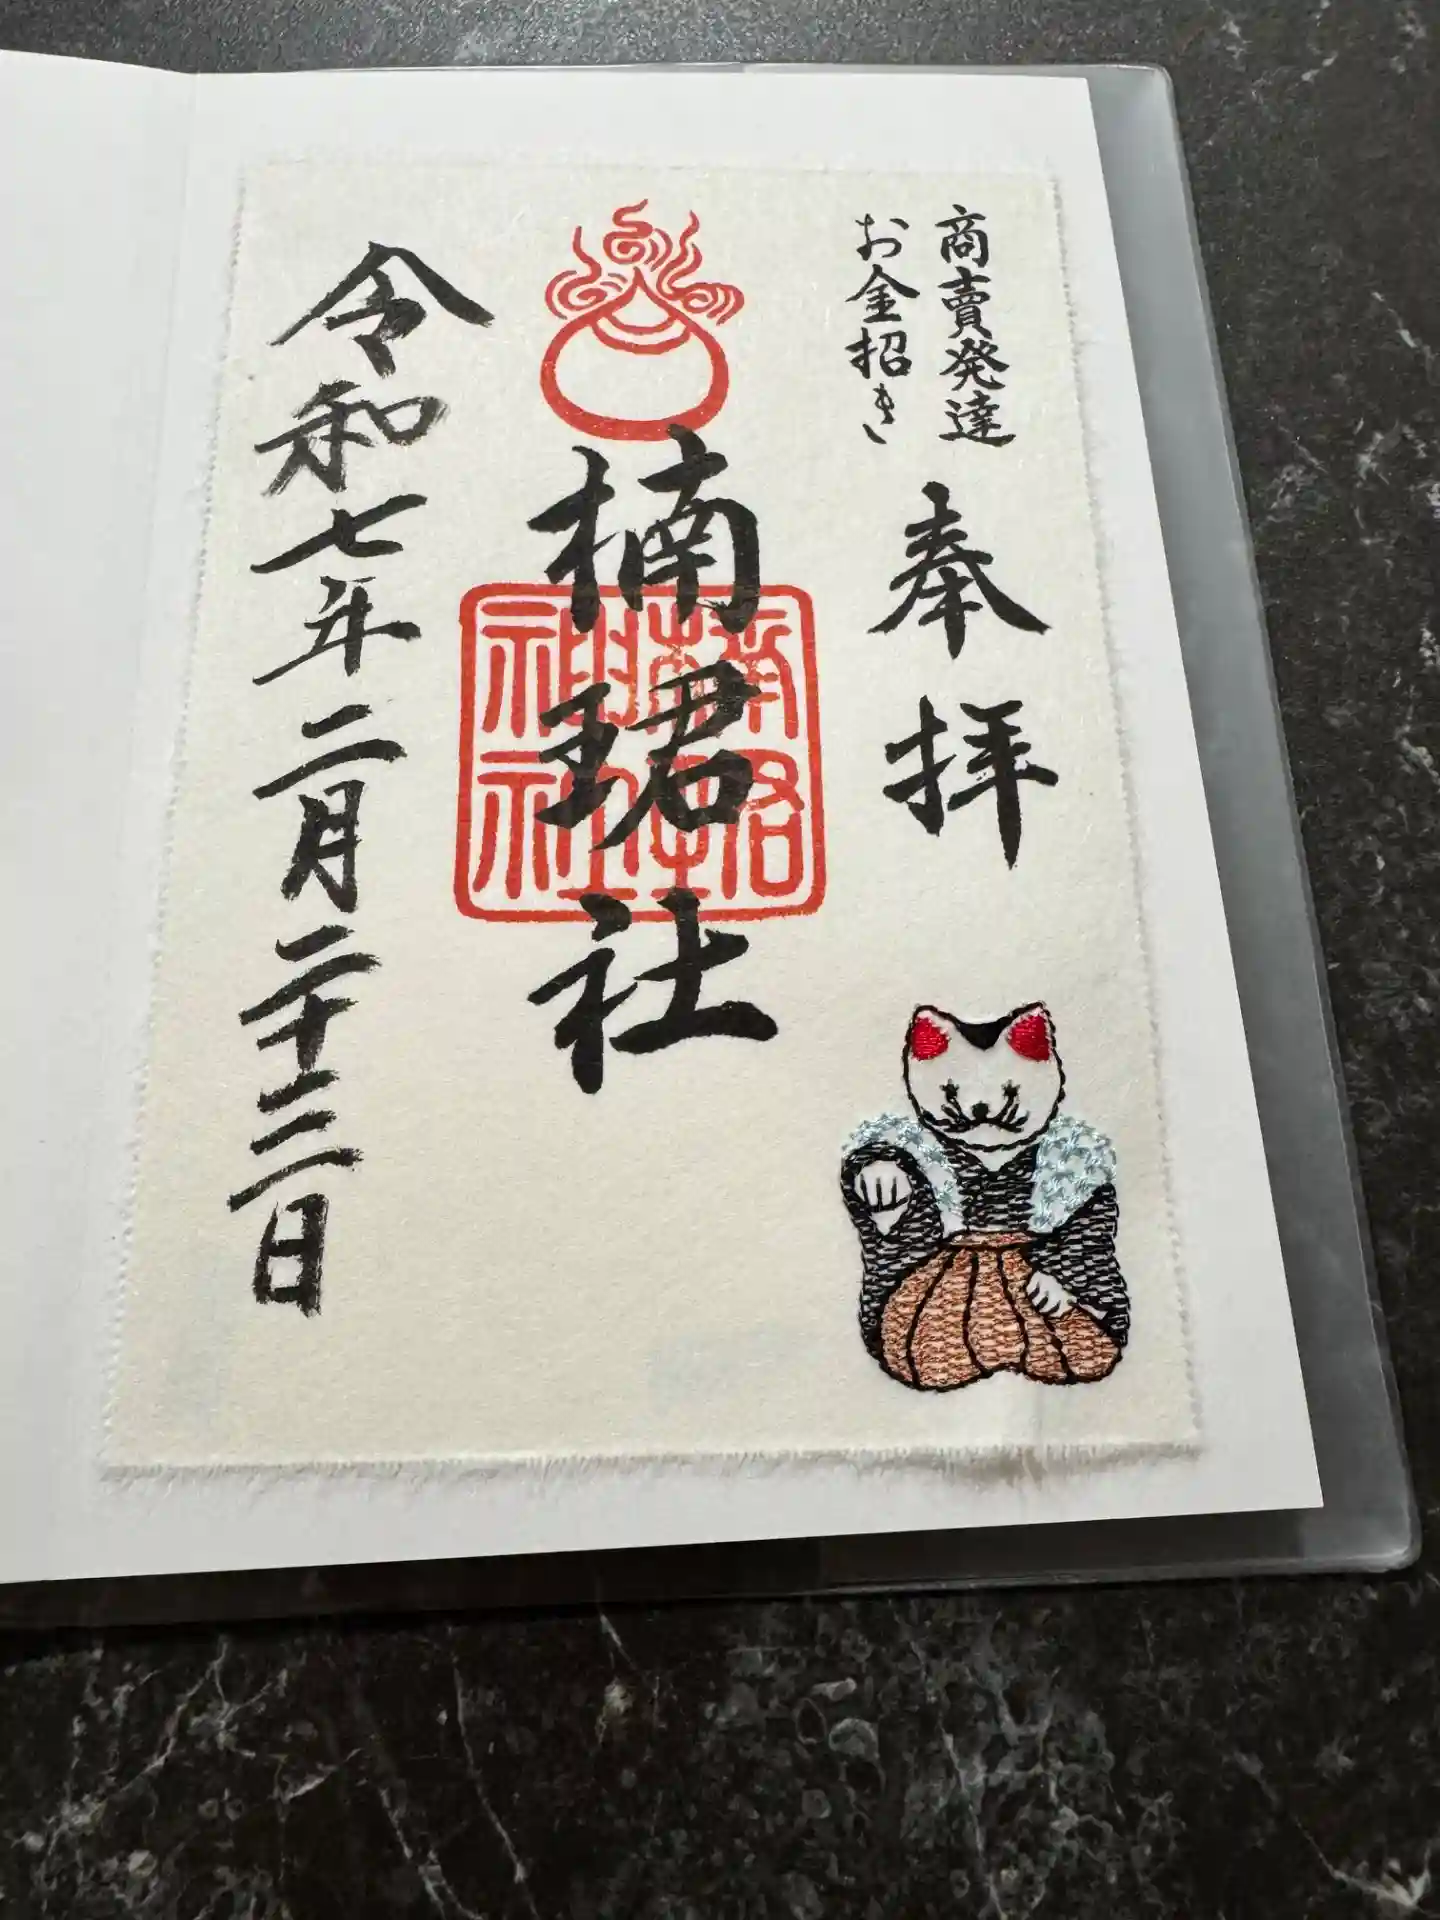 商賣発達
お金招き
奉拝
楠珺社
楠珺神社
令和七年二月二十三日